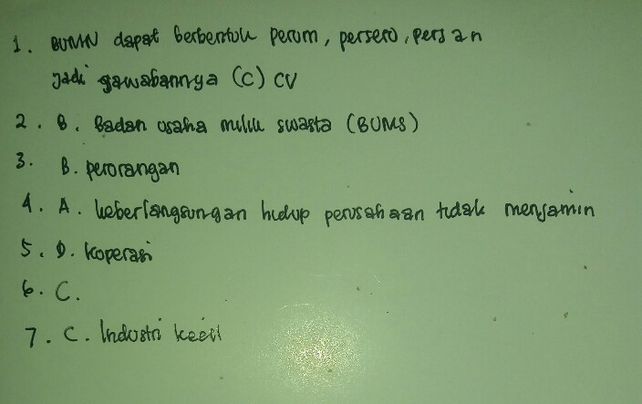 1. BUMN dapat berbentuk perum, persero, persan
jadi jawabannya (C) CV
2. B. Badan usaha milik swasta (BUMS)
3. B. perorangan
4. A. keberlangsungan hidup perusahaan tidak menjamin
5. D. koperasi
6. C.
7. C. Industri kecil